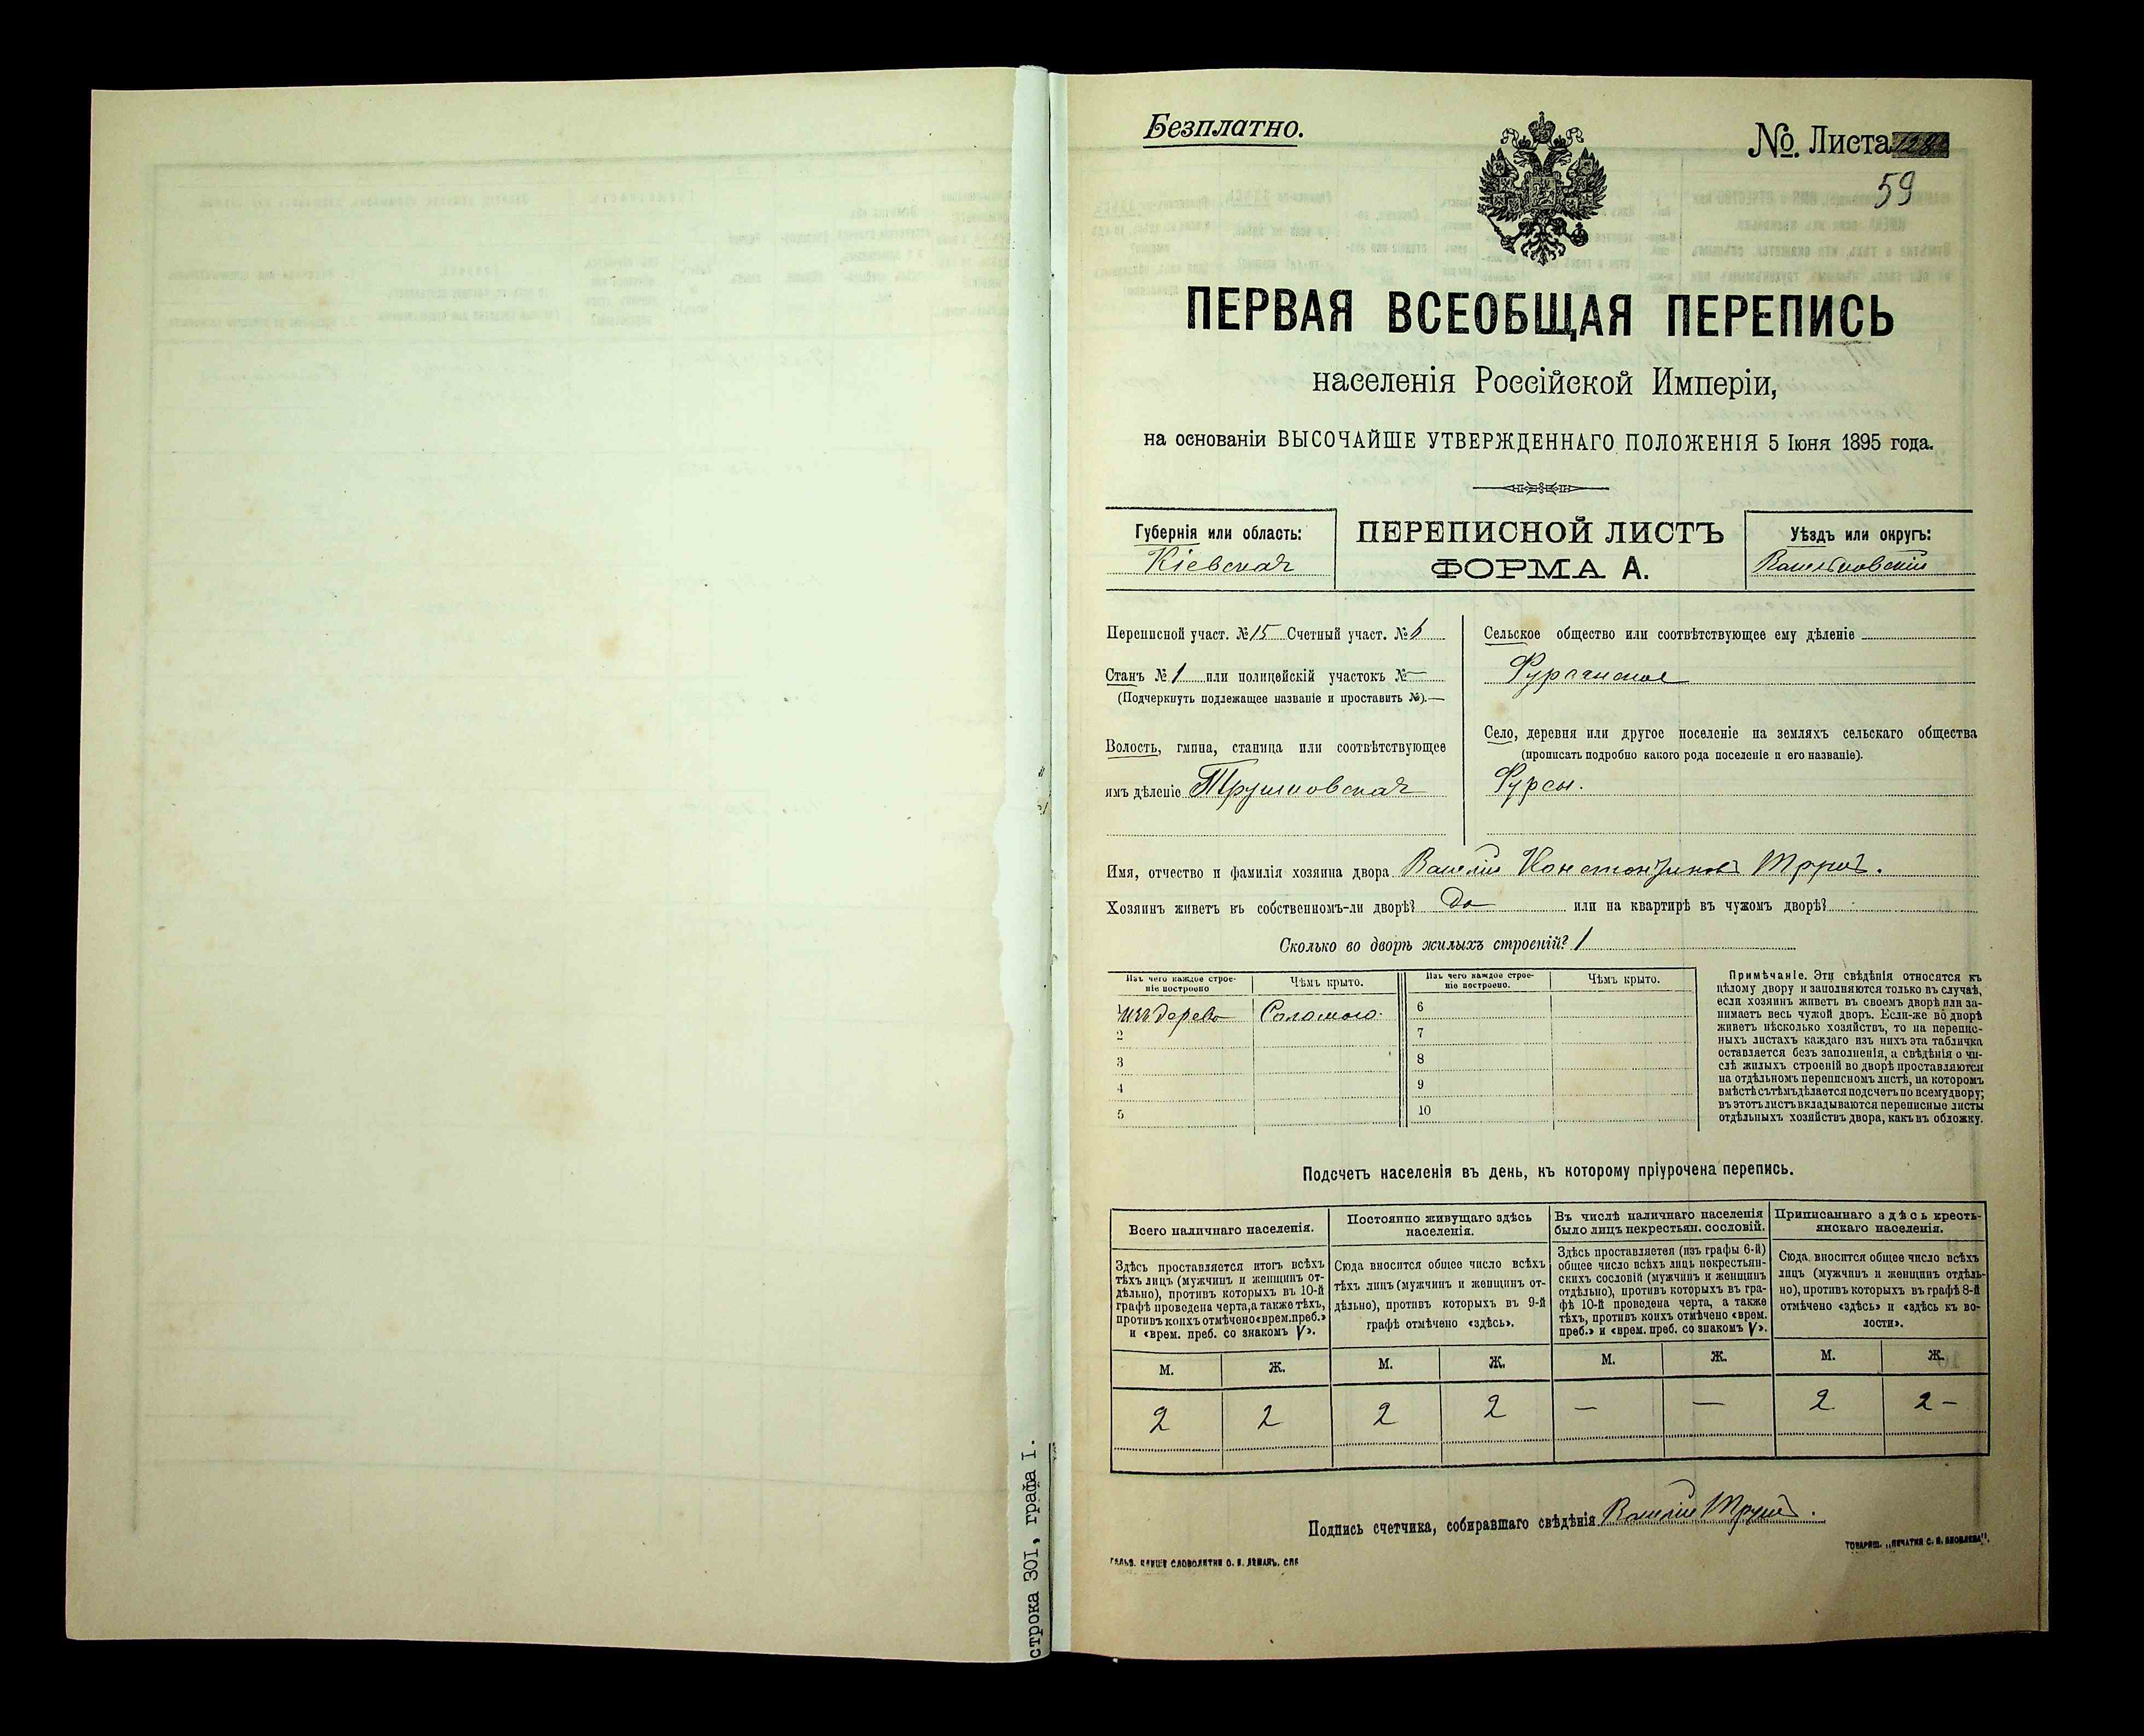 Безплатно.
№. Листа 128
59
ПЕРВАЯ ВСЕОБЩАЯ ПЕРЕПИСЬ
населенія Россійской Имперіи,
на основаніи ВЫСОЧАЙШЕ УТВЕРЖДЕННАГО ПОЛОЖЕНІЯ 5 Іюня 1895 года.
Губернія или область:
Кіевская
ПЕРЕПИСНОЙ ЛИСТЪ
ФОРМА А.
Уѣздъ или округъ:
Васильковскій
Переписной участ. № 15 Счетный участ. № 6
Станъ № 1 или полицейскій участокъ № —
(Подчеркнуть подлежащее названіе и проставить №).—
Волость, гмина, станица или соотвѣтствующее
имъ дѣленіе Трушковская
Сельское общество или соотвѣтствующее ему дѣленіе
Фурсинское
Село, деревня или другое поселеніе на земляхъ сельскаго общества
(прописать подробно какого рода поселеніе и его названіе).
Фурсы.
Имя, отчество и фамилія хозяина двора Василій Константиновъ
Хозяинъ живетъ въ собственномъ-ли дворѣ? Да или на квартирѣ въ чужомъ дворѣ?
Сколько во дворѣ жилыхъ строеній? 1
Изъ чего каждое строе-
ніе построено
Чѣмъ крыто.
Изъ чего каждое строе-
ніе построено.
Чѣмъ крыто.
1 изъ дерева Соломою.
2
3
4
5
6
7
8
9
10
Примѣчаніе. Эти свѣдѣнія относятся къ
цѣлому двору и заполняются только въ случаѣ,
если хозяинъ живетъ въ своемъ дворѣ или за-
нимаетъ весь чужой дворъ. Если-же во дворѣ
живетъ нѣсколько хозяйствъ, то на перепис-
ныхъ листахъ каждаго изъ нихъ эта табличка
оставляется безъ заполненія, а свѣдѣнія о чи-
слѣ жилыхъ строеній во дворѣ проставляются
на отдѣльномъ переписномъ листѣ, на которомъ
вмѣстѣ съ тѣмъ дѣлается подсчетъ по всему двору;
въ этотъ листъ вкладываются переписные листы
отдѣльныхъ хозяйствъ двора, какъ въ обложку.
Подсчетъ населенія въ день, къ которому пріурочена перепись.
Всего наличнаго населенія.
Здѣсь проставляется итогъ всѣхъ
тѣхъ лицъ (мужчинъ и женщинъ от-
дѣльно), противъ которыхъ въ 10-й
графѣ проведена черта, а также тѣхъ,
противъ коихъ отмѣчено «врем. преб.»
и «врем. преб. со знакомъ V».
Постоянно живущаго здѣсь
населенія.
Сюда вносится общее число всѣхъ
тѣхъ лицъ (мужчинъ и женщинъ от-
дѣльно), противъ которыхъ въ 9-й
графѣ отмѣчено «здѣсь».
Въ числѣ наличнаго населенія
было лицъ некрестьян. сословій.
Здѣсь проставляется (изъ графы 6-й)
общее число всѣхъ лицъ некрестьян-
скихъ сословій (мужчинъ и женщинъ
отдѣльно), противъ которыхъ въ гра-
фѣ 10-й проведена черта, а также
тѣхъ, противъ коихъ отмѣчено «врем.
преб.» и «врем. преб. со знакомъ V».
Приписаннаго здѣсь кресть-
янскаго населенія.
Сюда вносится общее число всѣхъ
лицъ (мужчинъ и женщинъ отдѣль-
но), противъ которыхъ въ графѣ 8-й
отмѣчено «здѣсь» и «здѣсь къ во-
лости».
М. Ж. М. Ж. М. Ж. М. Ж.
2 2 2 2 — — 2 2 —
Подпись счетчика, собиравшаго свѣдѣнія Василій
ГАЛЬВ. КЛИШЕ СЛОВОЛИТНИ О. И. ЛЕМАНЪ, СПБ
ТОВАРИЩ. „ПЕЧАТНЯ С. П. ЯКОВЛЕВА".
строка 301, графа I.